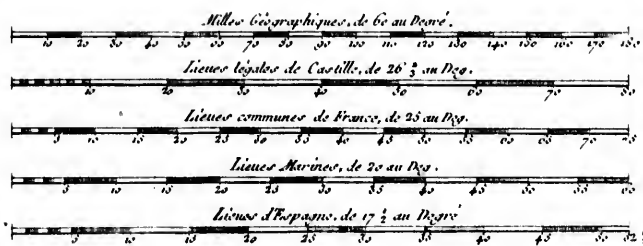 Milles Géographiques, de 60 au Degré.
10 20 30 40 50 60 70 80 90 100 110 120 130 140 150 160 170 180
Lieues légales de Castille, de 26 2/3 au Deg.
10 20 30 40 50 60 70 80
Lieues communes de France, de 25 au Deg.
5 10 15 20 25 30 35 40 45 50 55 60 65 70 75
Lieues Marines, de 20 au Deg.
5 10 15 20 25 30 35 40 45 50 55 60
Lieues d'Espagne, de 17 1/2 au Degré
5 10 15 20 25 30 35 40 45 50